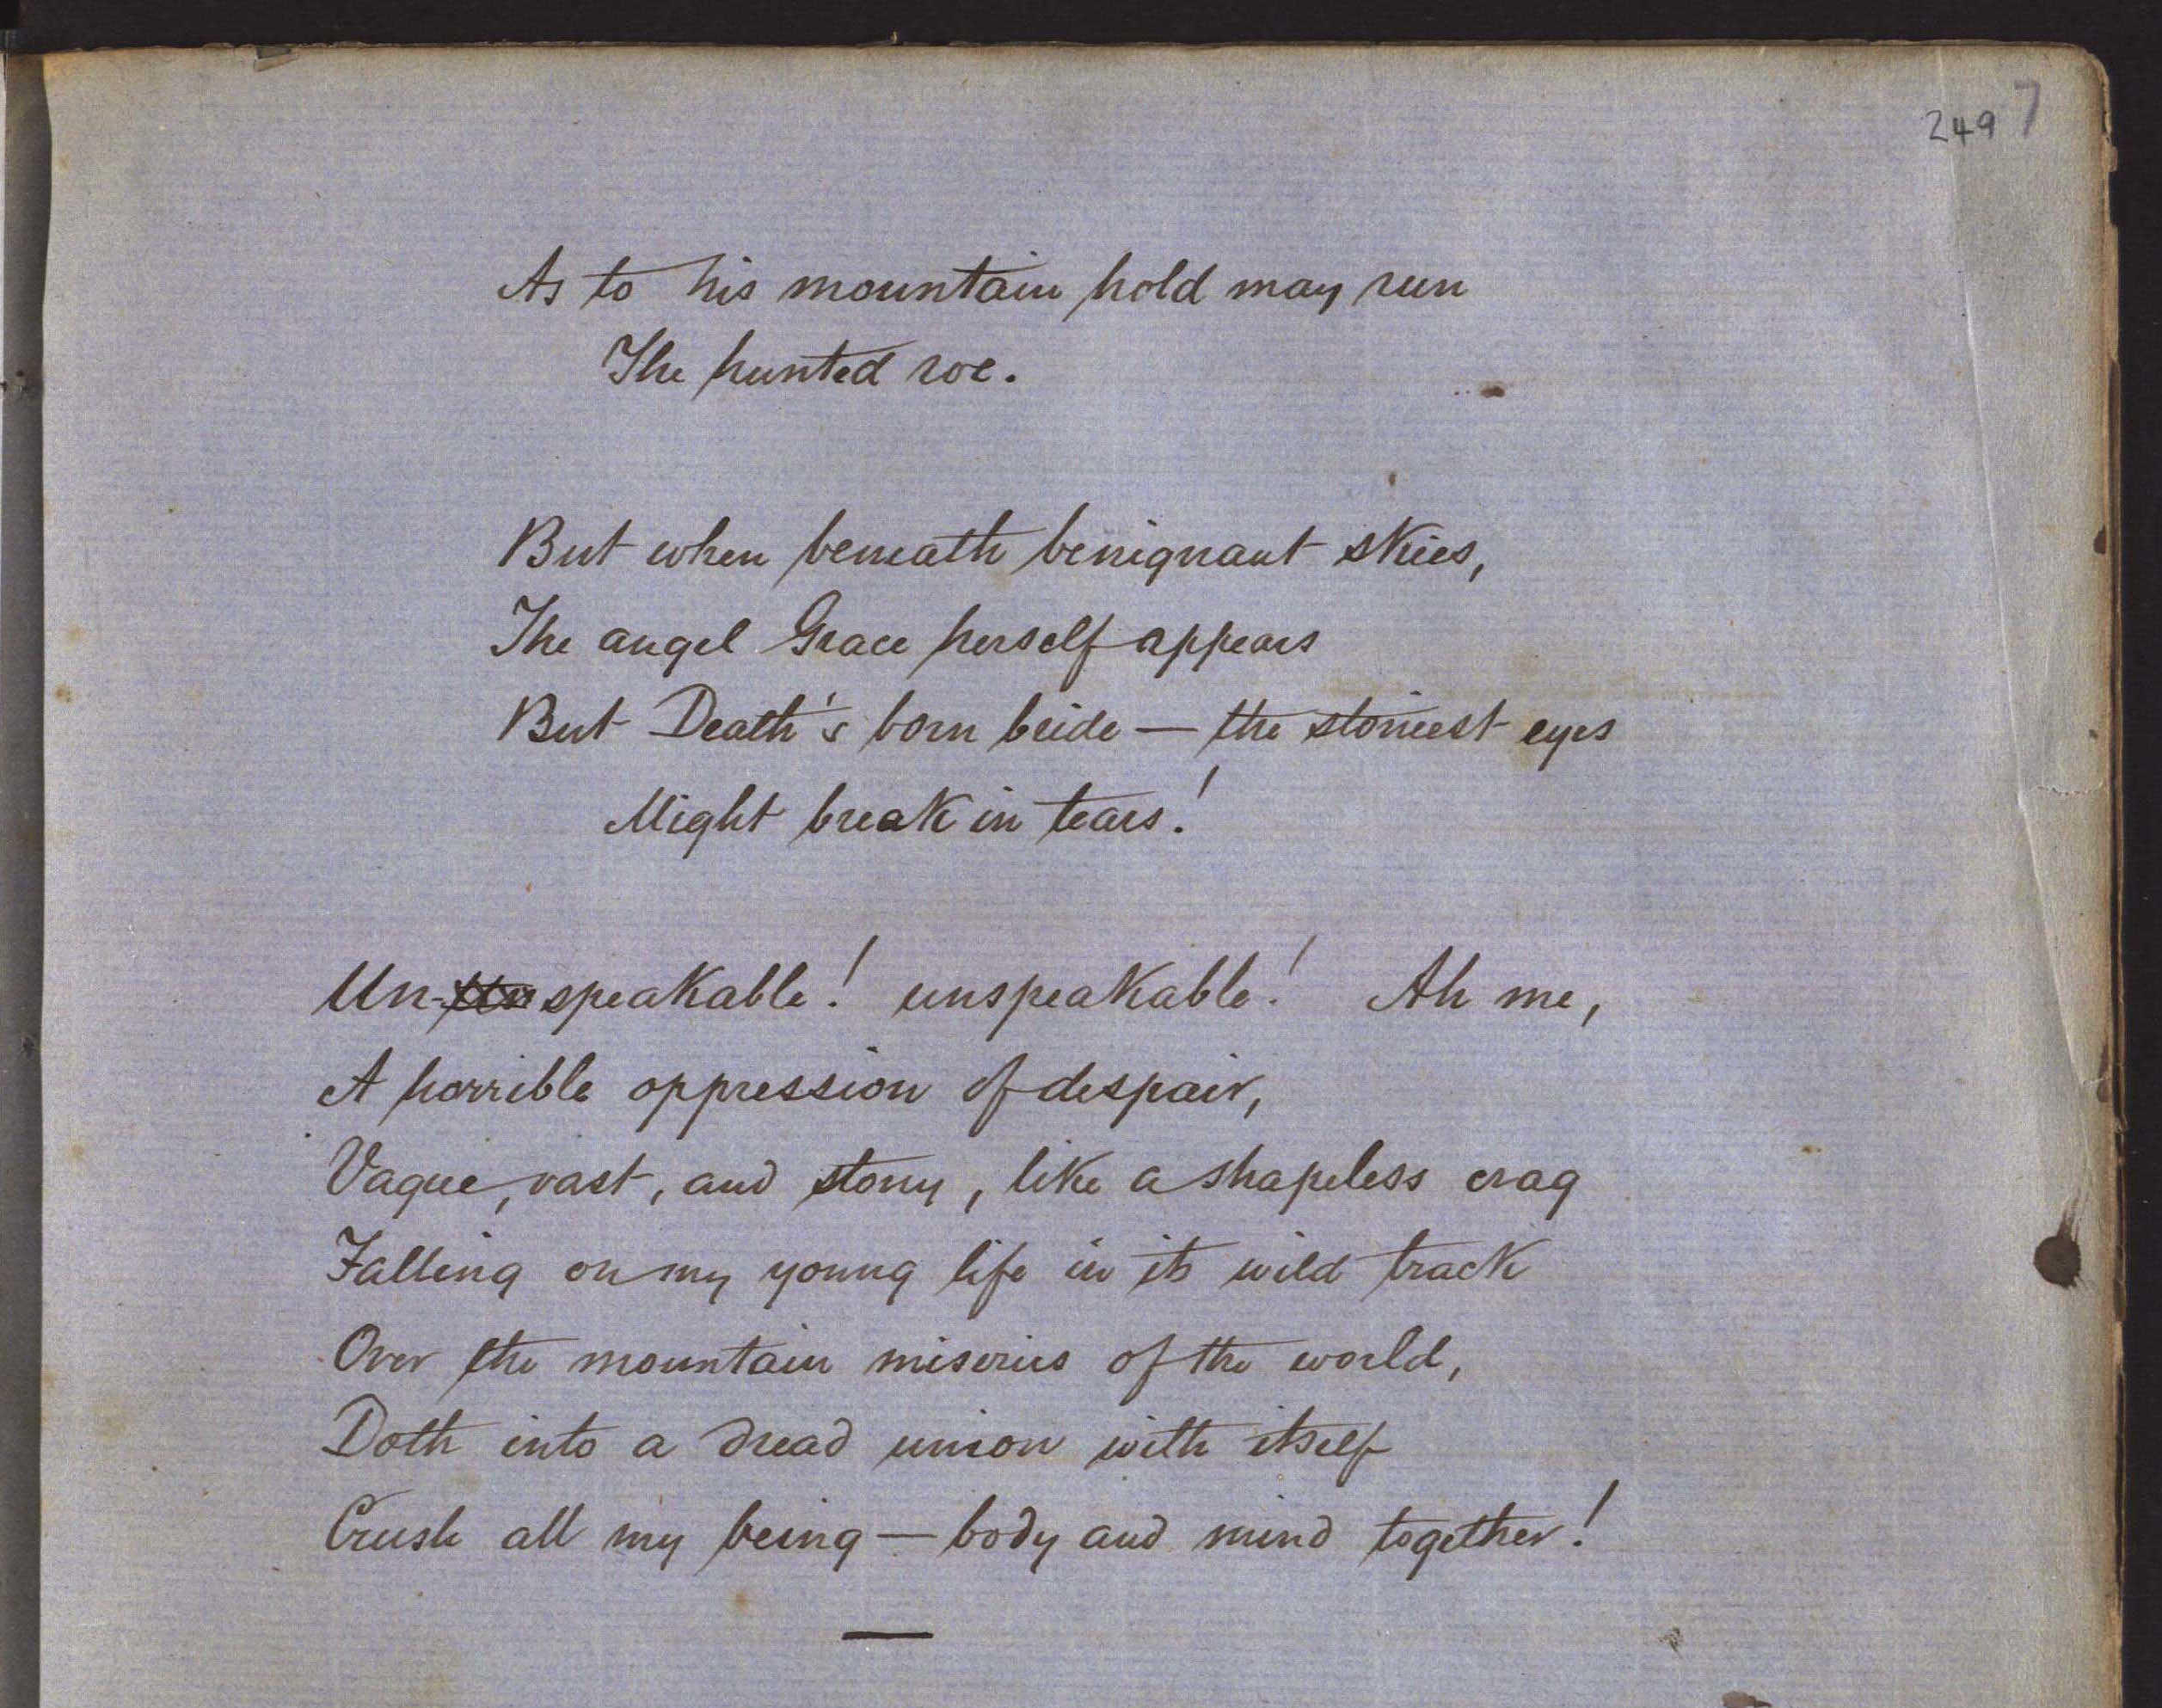 249 7
As to his mountain hold may run
The hunted roe.
But when beneath benignant skies,
The angel Grace herself appears
But Death's born bride — the stoniest eyes
Might break in tears!
Un-speakable! unspeakable! Ah me,
A horrible oppression of despair,
Vague, vast, and stony, like a shapeless crag
Falling on my young life in its wild track
Over the mountain miseries of the world,
Doth into a dread union with itself
Crush all my being — body and mind together!